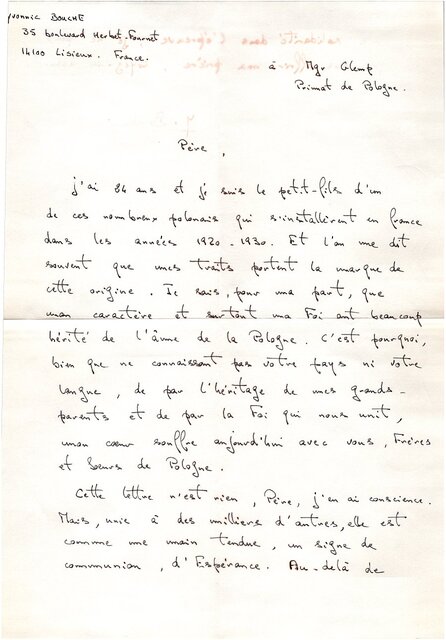 Yvonnic BOUCHÉ
35 boulevard Herbet-Fournet
14100 Lisieux. France.
à Mgr Glemp
Primat de Pologne.
Père,
j'ai 24 ans et je suis le petit-fils d'un
de ces nombreux polonais qui s'installèrent en france
dans les années 1920-1930. Et l'on me dit
souvent que mes traits portent la marque de
cette origine. Je sais, pour ma part, que
mon caractère et surtout ma Foi ont beaucoup
hérité de l'âme de la Pologne. C'est pourquoi,
bien que ne connaissant pas votre pays ni votre
langue, de par l'héritage de mes grands-
parents et de par la Foi qui nous unit,
mon cœur souffre aujourd'hui avec vous, Frères
et Sœurs de Pologne.
Cette lettre n'est rien, Père, j'en ai conscience.
Mais, unie à des milliers d'autres, elle est
comme une main tendue, un signe de
communion, d'Espérance. Au-delà de